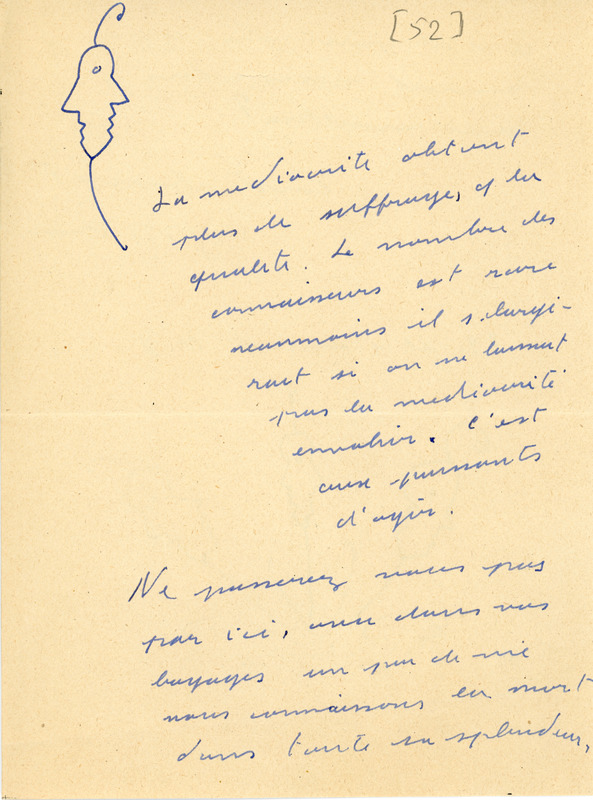 [52]
La mediocrite obtient
plus de suffrage, q la
qualite. Le nombre des
connaisseurs est rare
neanmoins il s'elargi-
rait si on ne laissait
pas la mediocrité
envahir. C'est
aux puissants
d'agir.
Ne passerez vous pas
par ici, avec dans vos
bagages un peu de vie
nous connaissons la mort
dans toute sa splendeur,